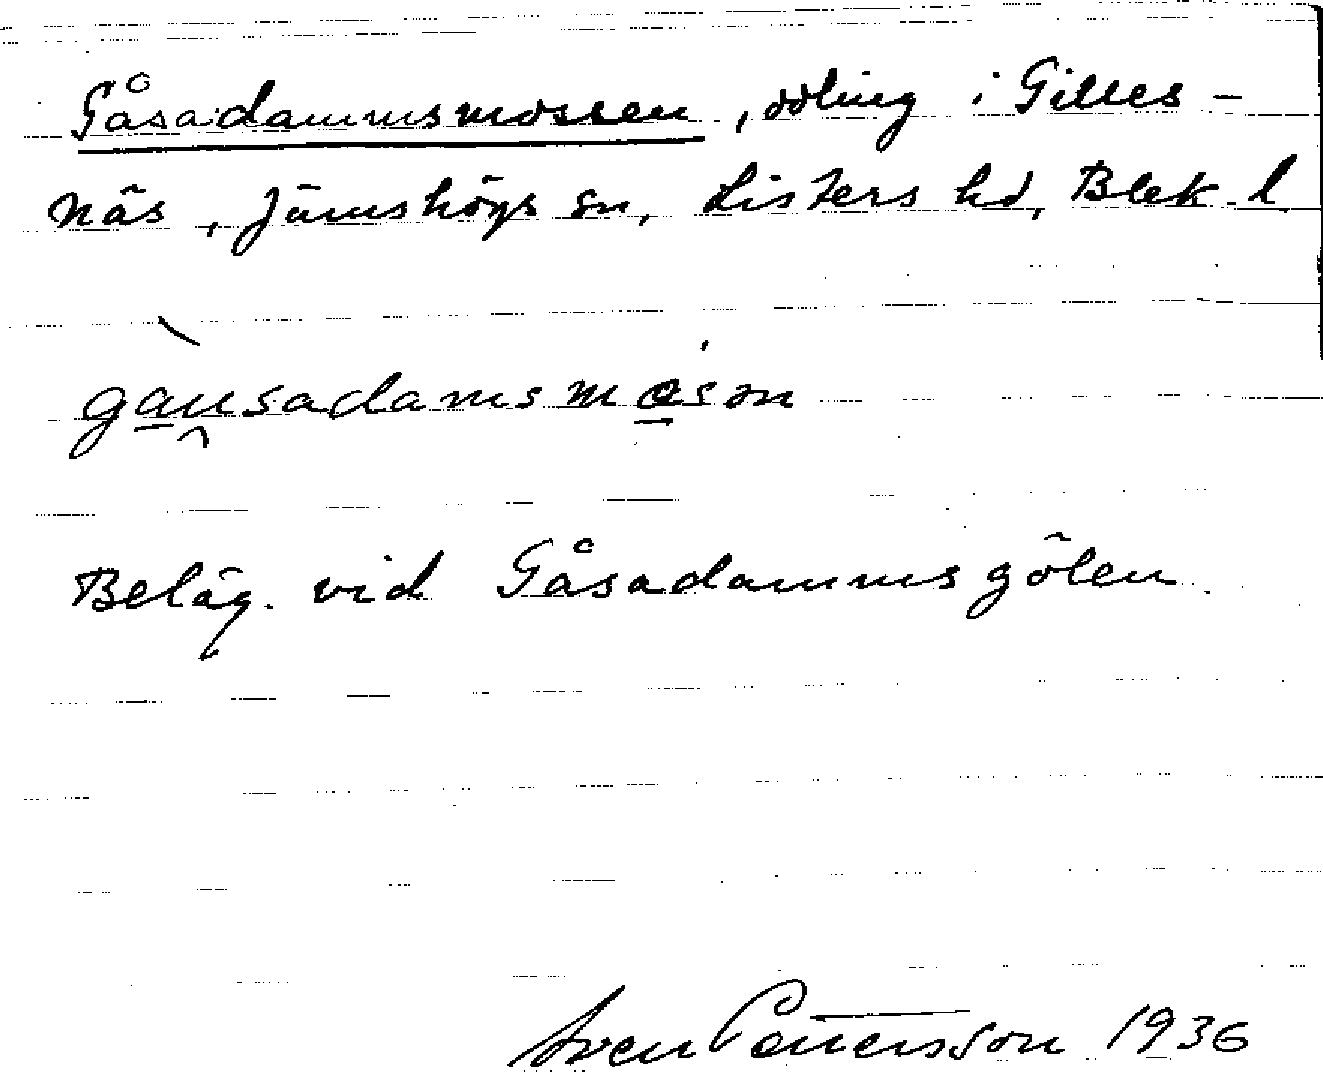 Gåsadammsmossen, odling i Gilles-
näs, Jämshögs sn, Listers hd, Blek. l.
gausadamsmosən
Beläg. vid Gåsadammsgölen.
Sven Pettersson 1936